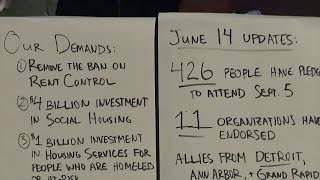 OUR DEMANDS:
① REMOVE THE BAN ON
RENT CONTROL
② $4 BILLION INVESTMENT
IN SOCIAL HOUSING
③ $1 BILLION INVESTMENT
IN HOUSING SERVICES FOR
PEOPLE WHO ARE HOMELESS
OR AT-RISK
JUNE 14 UPDATES:
426 PEOPLE HAVE PLEDG
TO ATTEND SEPT. 5
11 ORGANIZATIONS HAVE
ENDORSED
ALLIES FROM DETROIT,
ANN ARBOR, + GRAND RAPID